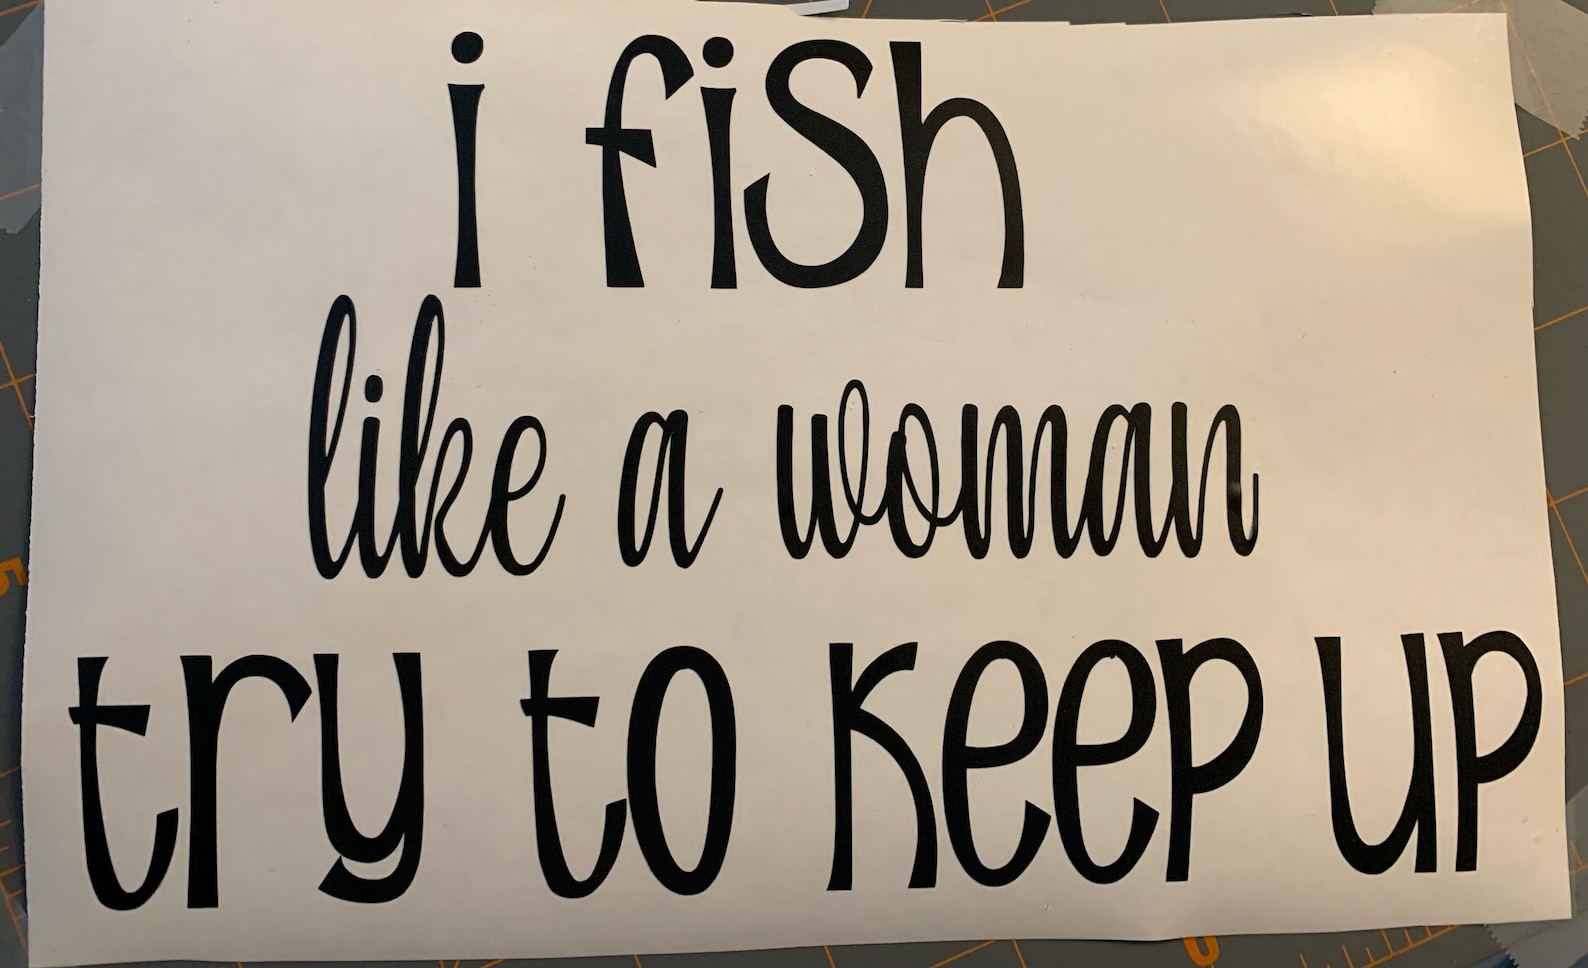 i fish
like a woman
try to keep up